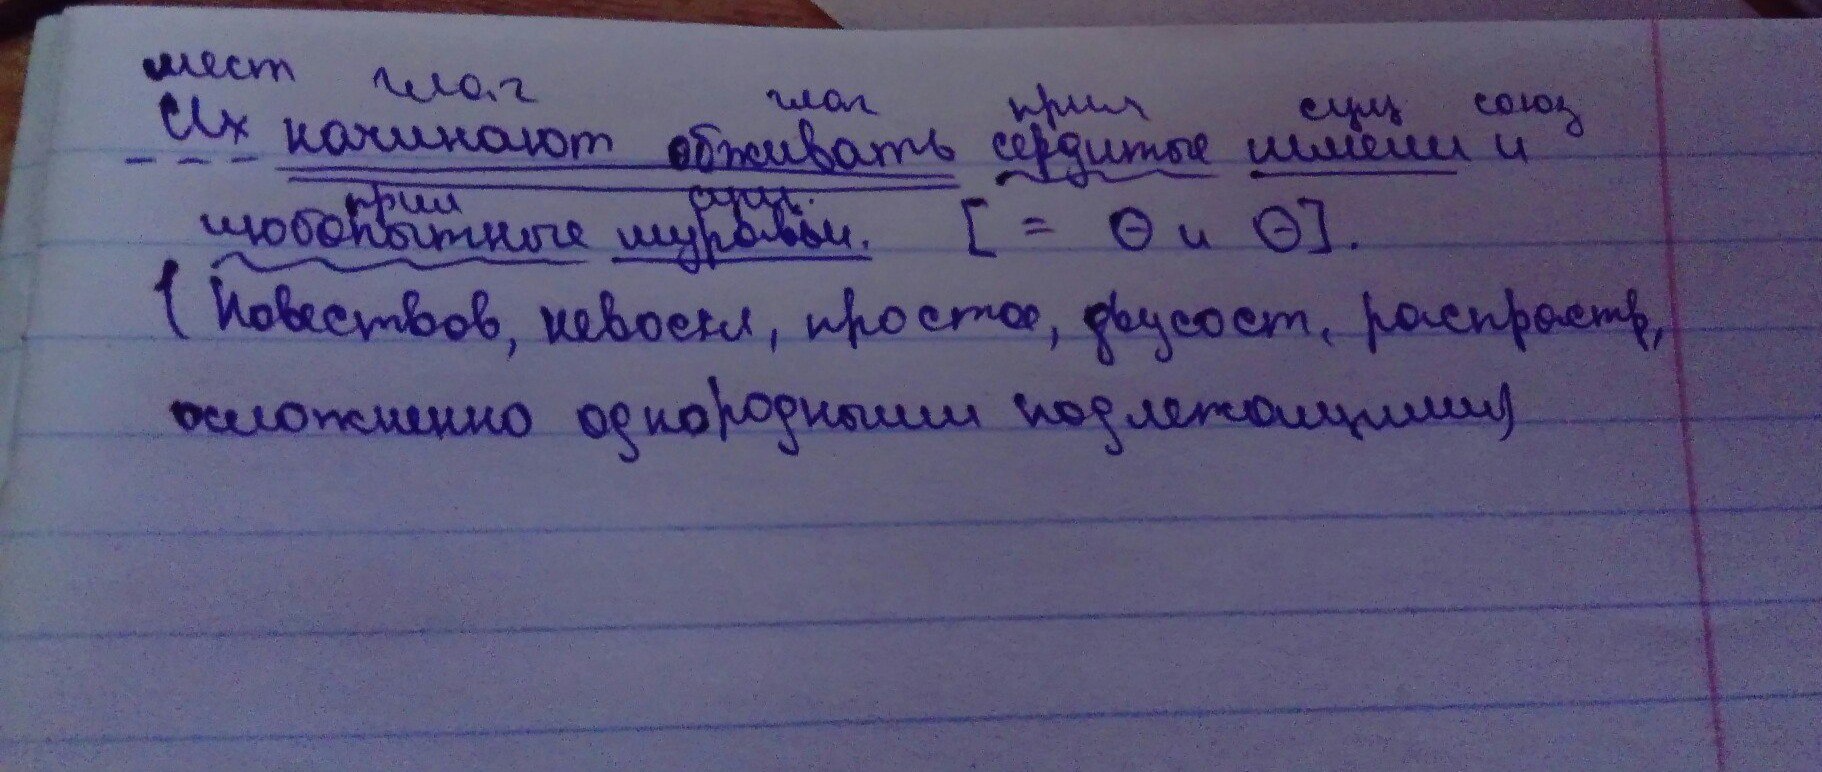 мест глаг глаг прил сущ союз
Их начинают обживать сердитые шмели и
прил сущ.
любопытные муравьи. [ = ⊖ и ⊖].
(Повествов, невоскл, простое, двусост, распростр,
осложненно однородными подлежащими)